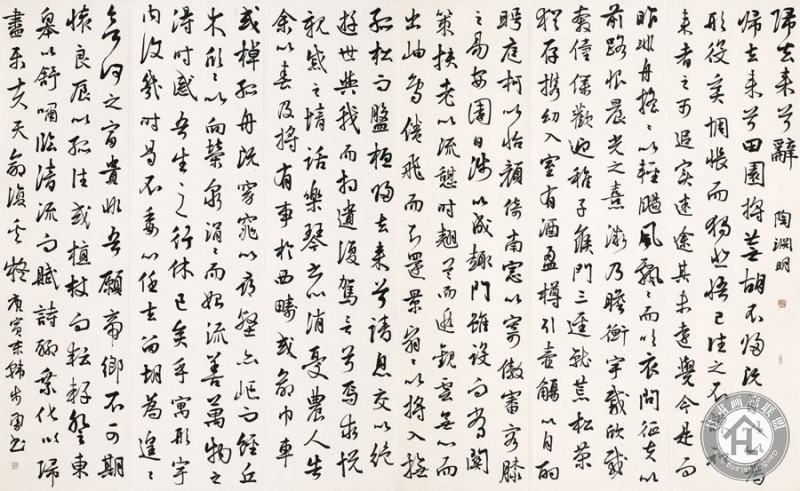 歸去來兮辭 陶淵明
歸去來兮田園將蕪胡不歸既為
形役奚惆悵而獨悲悟已往之不
來者之可追實迷途其未遠覺今是而
昨非舟搖搖以輕颺風飄飄而吹衣問征夫以
前路恨晨光之熹微乃瞻衡宇載欣載
奔僮僕歡迎稚子候門三徑就荒松菊
猶存攜幼入室有酒盈樽引壺觴以自酌
眄庭柯以怡顏倚南窗以寄傲審容膝
之易安園日涉以成趣門雖設而常關
策扶老以流憩時翹首而遐觀雲無心而
出岫鳥倦飛而知還景翳翳以將入撫
孤松而盤桓歸去來兮請息交以絕
遊世與我而相遺復駕言兮焉求悅
親戚之情話樂琴書以消憂農人告
余以春及將有事於西疇或命巾車
或棹孤舟既窈窕以尋壑亦崎嶇而經丘
木欣欣以向榮泉涓涓而始流善萬物之
得時感吾生之行休已矣乎寓形宇
內復幾時曷不委心以任去留胡為遑遑
兮何之富貴非吾願帝鄉不可期
懷良辰以孤往或植杖而耘耔登東
皋以舒嘯臨清流而賦詩聊乘化以歸
盡樂夫天命復奚疑 庚寅冬韓書